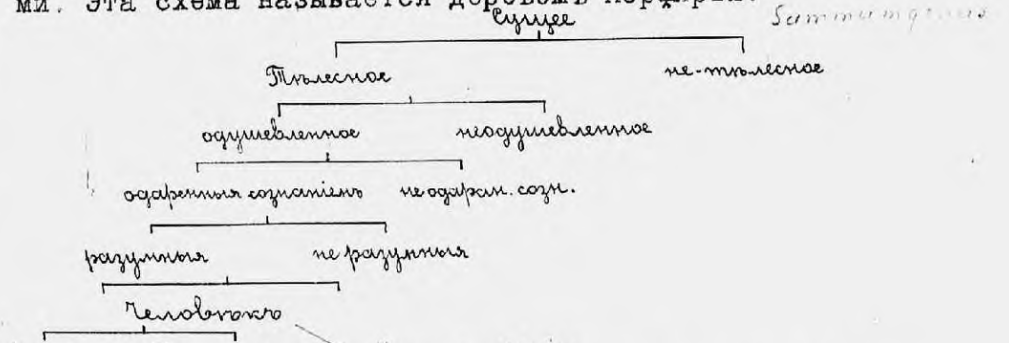 ми. Эта схема называется деревомъ Порфирія.
Сущее
Summum genus
Тѣлесное не-тѣлесное
одушевленное неодушевленное
одаренныя сознаніемъ не одарен. созн.
разумныя не разумныя
Человѣкъ